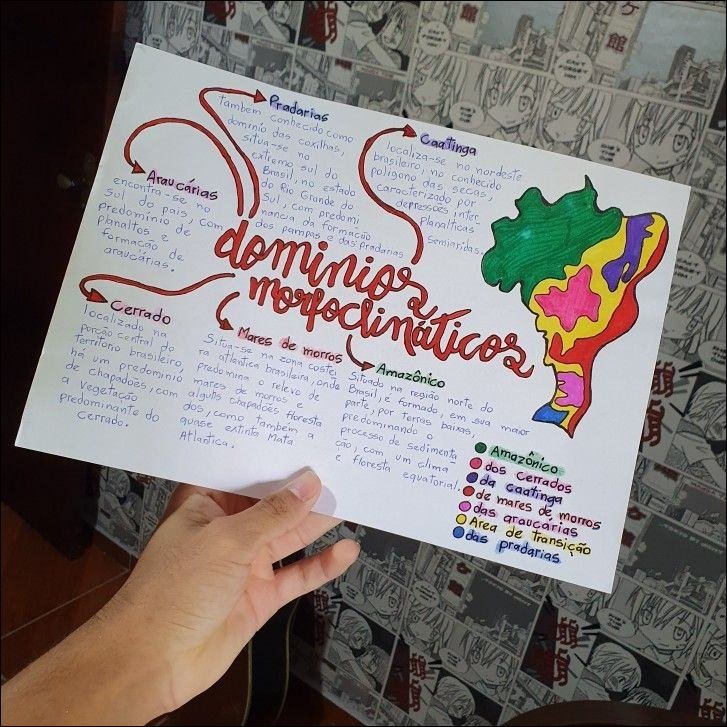 Pradarias
também conhecido como
domínio das coxilhas,
situa-se no
extremo sul do
Brasil, no estado
do Rio Grande do
Sul, com predomi
nancia da formação
dos pampas e das pradarias
Caatinga
localiza-se no nordeste
brasileiro, no conhecido
polígono das secas,
caracterizado por
depressões inter
planálticas
semiaridas.
Araucárias
encontra-se no
sul do país, com
predomínio de
planaltos e
formação de
araucárias.
domínios
morfoclimáticos
Cerrado
localizado na
porção central do
território brasileiro,
há um predomínio
de chapadões, com
a vegetação
predominante do
Cerrado.
Mares de morros
Situa-se na zona coste
ra atlantica brasileira, onde
predomina o relevo de
mares de morros e
alguns chapadões floresta
dos, como também a
quase extinta Mata
Atlantica.
Amazônico
Situado na região norte do
Brasil, é formado, em sua maior
parte, por terras baixas,
predominando o
processo de sedimenta
ção, com um clima
e floresta equatorial.
Amazônico
dos cerrados
da caatinga
de mares de morros
das araucárias
Area de transição
das pradarias